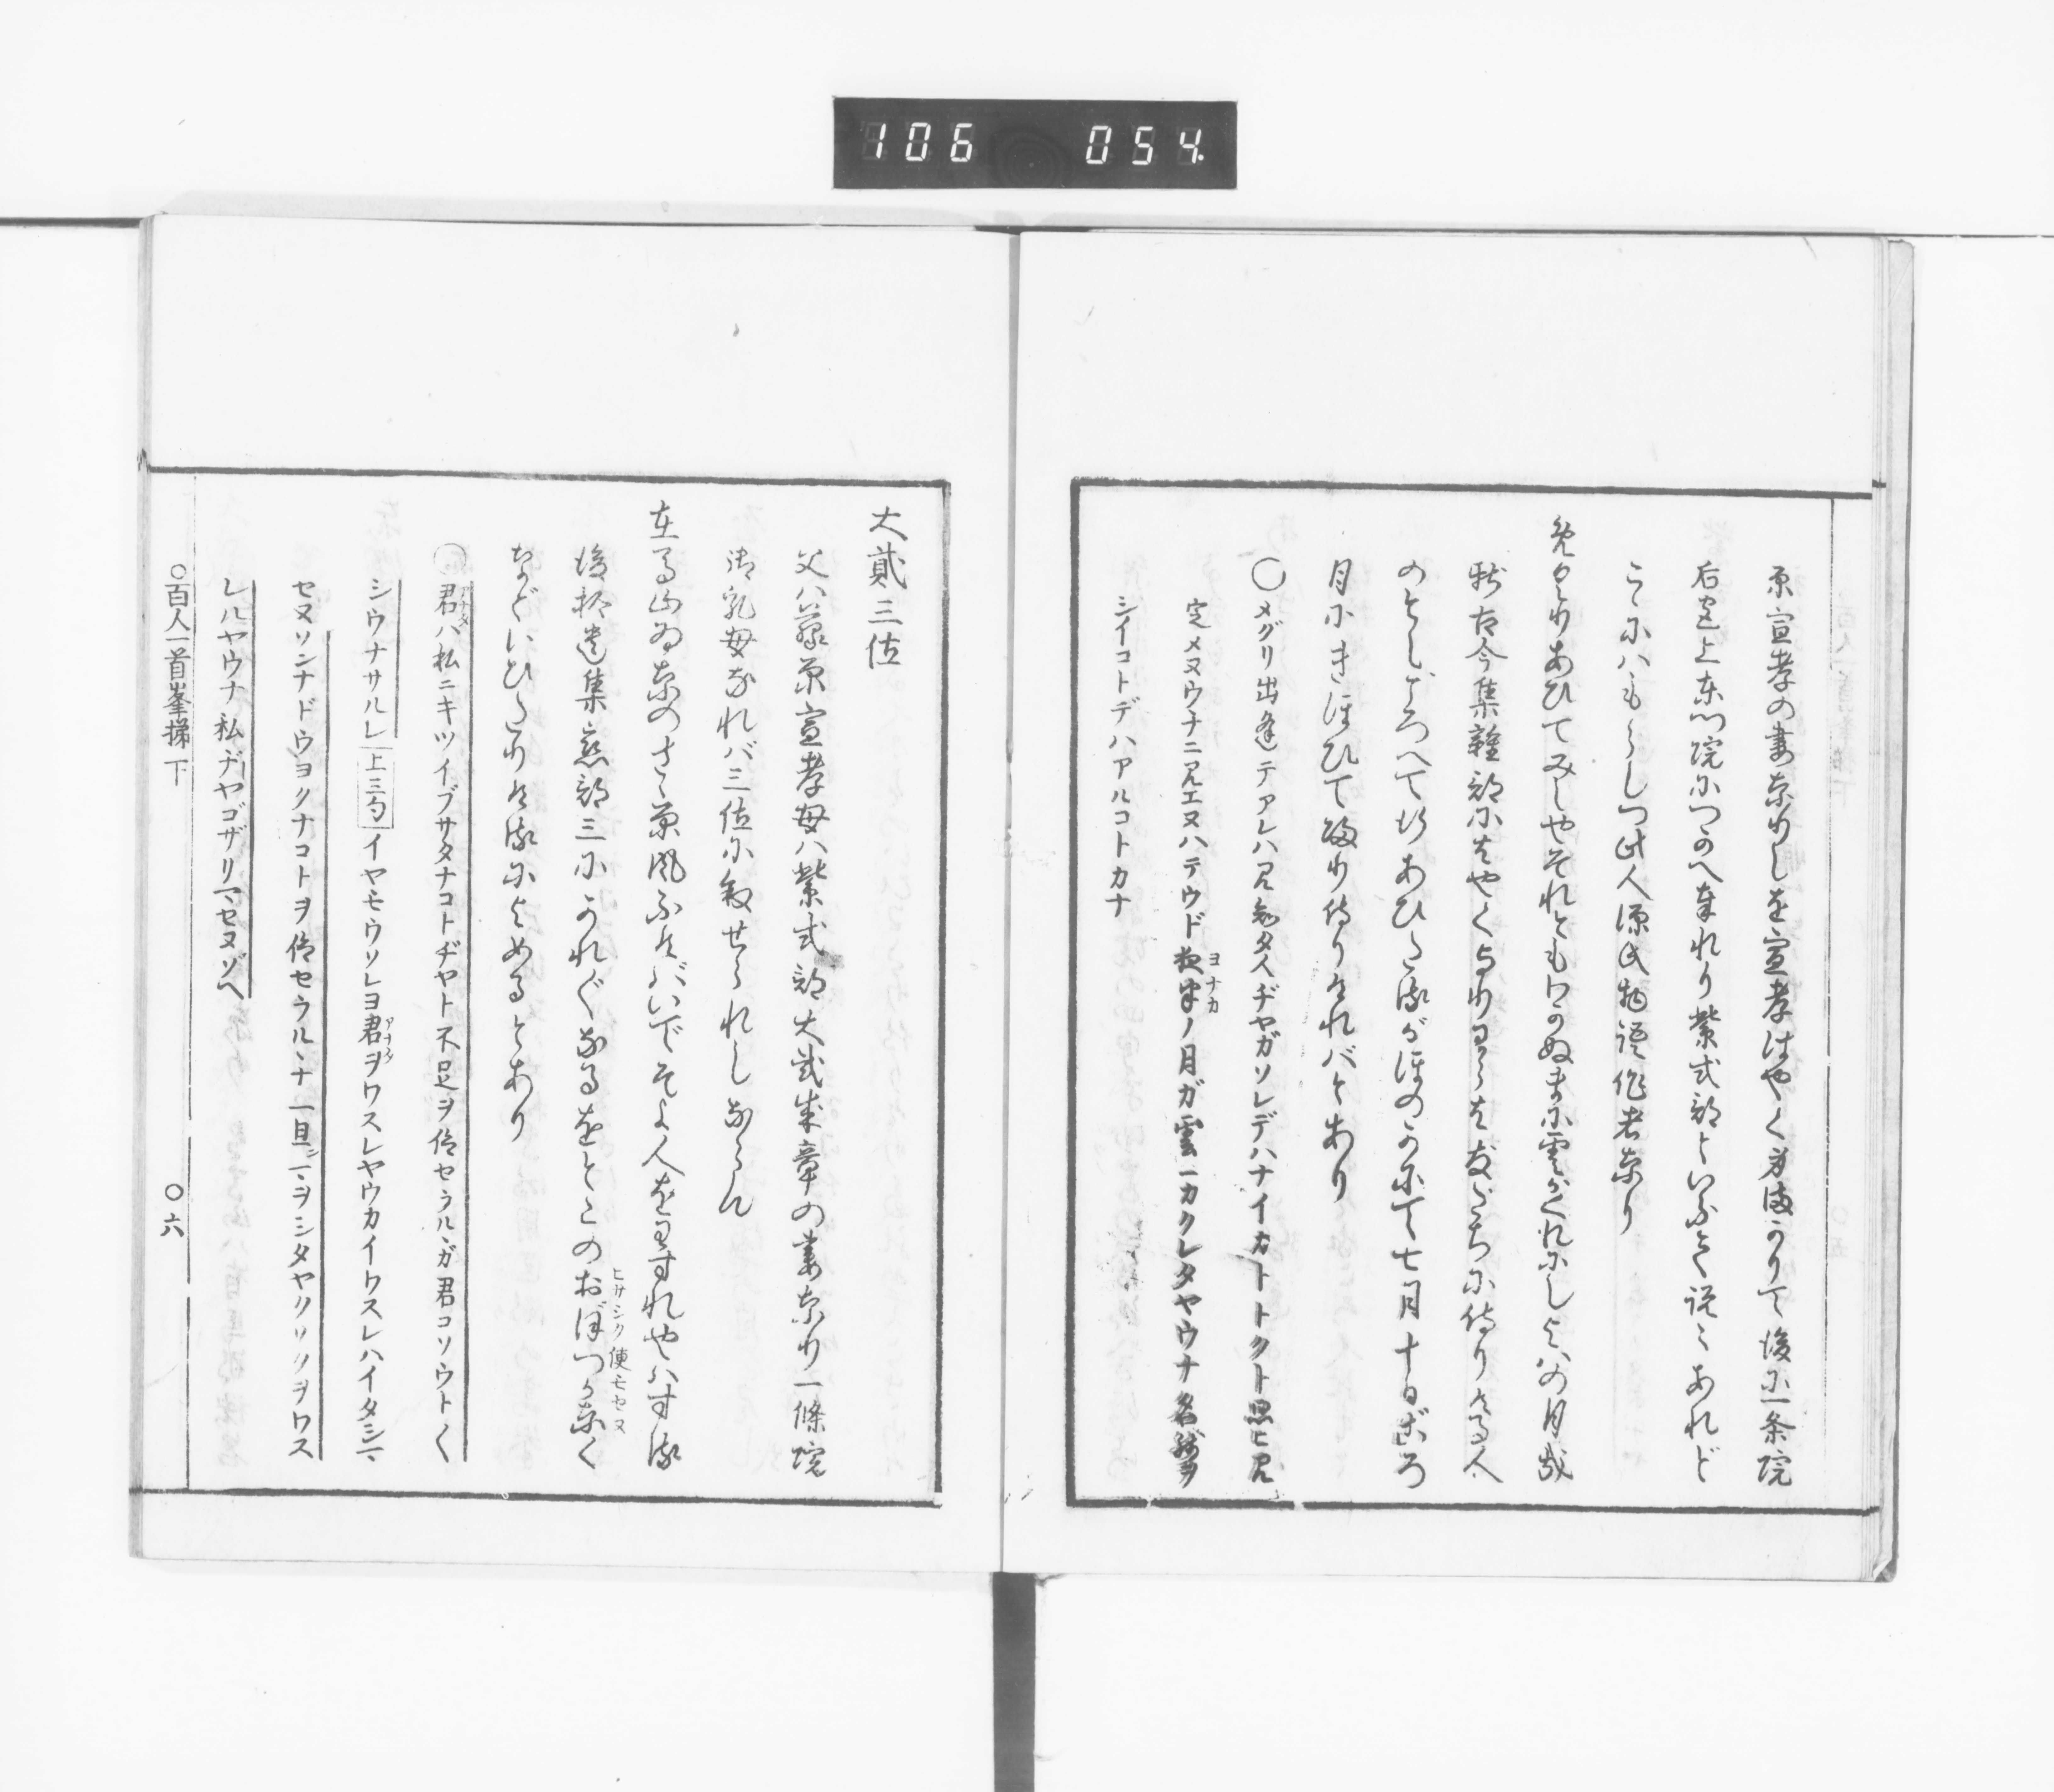 106 054
原宣孝の妻なりしを宣孝はやく身まかりて後に一条院
后宮上東門院につかへ奉れり紫式部といふ名説々あれど
こゝにハもらしつ此人源氏物語作者なり
免ぐりあひてみしやそれともわかぬまに雲がくれにしよはの月哉
新古今集雑部にはやくよりわらは友だちに侍りける人
のとしごろへて行あひたるがほのかにて七月十日ごろ
月にきほひて帰り侍りけれバとあり
〇メグリ出逢テアレハ見知タ人ヂヤガソレデハナイカトトクト思ヒ見
定メヌウチニ見エヌハテウド夜半ノ月ガ雲ヘカクレタヤウナ名残ヲ
ヨナカ
シイコトデハアルコトカナ
大貳三位
父ハ藤原宣孝母ハ紫式部大貳成章の妻なり一條院
御乳母なれバ三位に叙せられしならん
在る山ゐなのさゝ原風ふけバいでそよ人をわすれやハする
後拾遺集恋部三にかれ〴〵なるをとこのおぼつかなく
ヒサシク便モセヌ
などいひたりけるによめるとあり
〇君ハ私ニキツイブサタナコトヂヤト不足ヲ仰セラルヽガ君コソウト〱
アナタ
シウナサルレ上三句イヤモウソレヨ君ヲワスレヤウカイワスレハイタシマ
アナタ
セヌソンナドウヨクナコトヲ仰セラルヽナ一旦ヲシタヤクソクヲワス
レルヤウナ私ヂヤゴザリマセヌゾヘ
〇百人一首峯梯 下
〇六